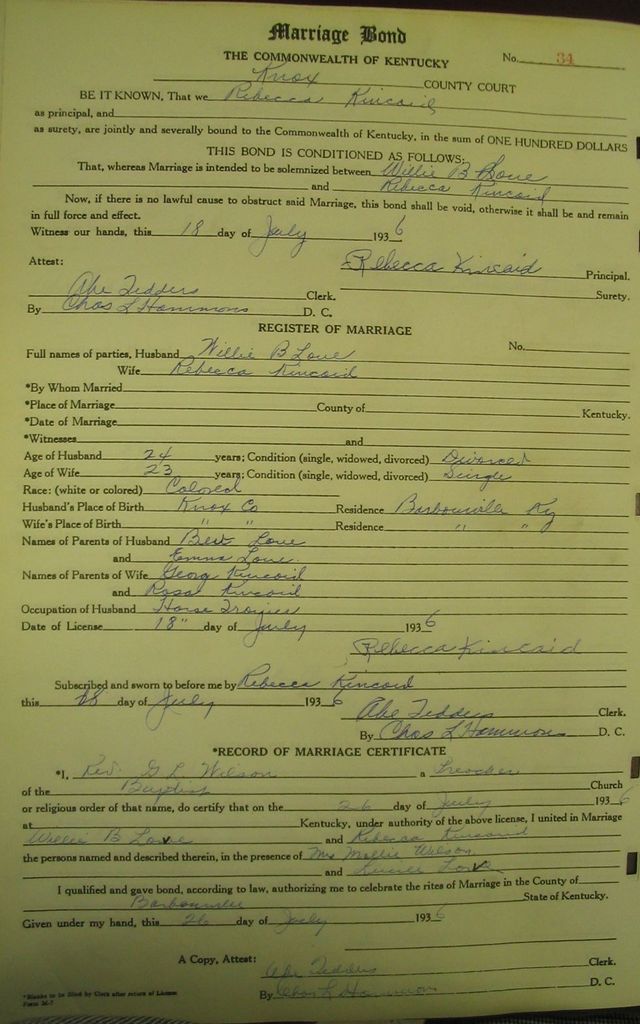 Marriage Bond
THE COMMONWEALTH OF KENTUCKY No. 34
Knox COUNTY COURT
BE IT KNOWN, That we Rebecca Kincaid
as principal, and
as surety, are jointly and severally bound to the Commonwealth of Kentucky, in the sum of ONE HUNDRED DOLLARS
THIS BOND IS CONDITIONED AS FOLLOWS:
That, whereas Marriage is intended to be solemnized between Willie B Love
and Rebecca Kincaid
Now, if there is no lawful cause to obstruct said Marriage, this bond shall be void, otherwise it shall be and remain
in full force and effect.
Witness our hands, this 18 day of July 1936
Attest: Rebecca Kincaid Principal.
Abe Tedders Clerk. Surety.
By Chas L Hammons D. C.
REGISTER OF MARRIAGE
Full names of parties, Husband Willie B Love No.
Wife Rebecca Kincaid
*By Whom Married
*Place of Marriage County of Kentucky.
*Date of Marriage
*Witnesses and
Age of Husband 24 years; Condition (single, widowed, divorced) Divorced
Age of Wife 23 years; Condition (single, widowed, divorced) Single
Race: (white or colored) Colored
Husband's Place of Birth Knox Co Residence Barbourville Ky
Wife's Place of Birth " " Residence " "
Names of Parents of Husband Love
and Emma Love
Names of Parents of Wife Georg Kincaid
and Rosa Kincaid
Occupation of Husband Horse
Date of License 18" day of July 1936
Rebecca Kincaid
Subscribed and sworn to before me by Rebecca Kincaid
this 18 day of July 1936
Abe Tedders Clerk.
By Chas L Hammons D. C.
*RECORD OF MARRIAGE CERTIFICATE
*I, Rev. G L Wilson a Preacher
of the Baptist Church
or religious order of that name, do certify that on the 26 day of July 1936
at Kentucky, under authority of the above license, I united in Marriage
Willie B Love and Rebecca Kincaid
the persons named and described therein, in the presence of Mrs Mollie Wilson
and Love
I qualified and gave bond, according to law, authorizing me to celebrate the rites of Marriage in the County of
Barbourville State of Kentucky.
Given under my hand, this 26 day of July 1936
A Copy, Attest: Abe Tedders Clerk.
By Chas L Hammons D. C.
*Blanks to be filled by Clerk after return of License